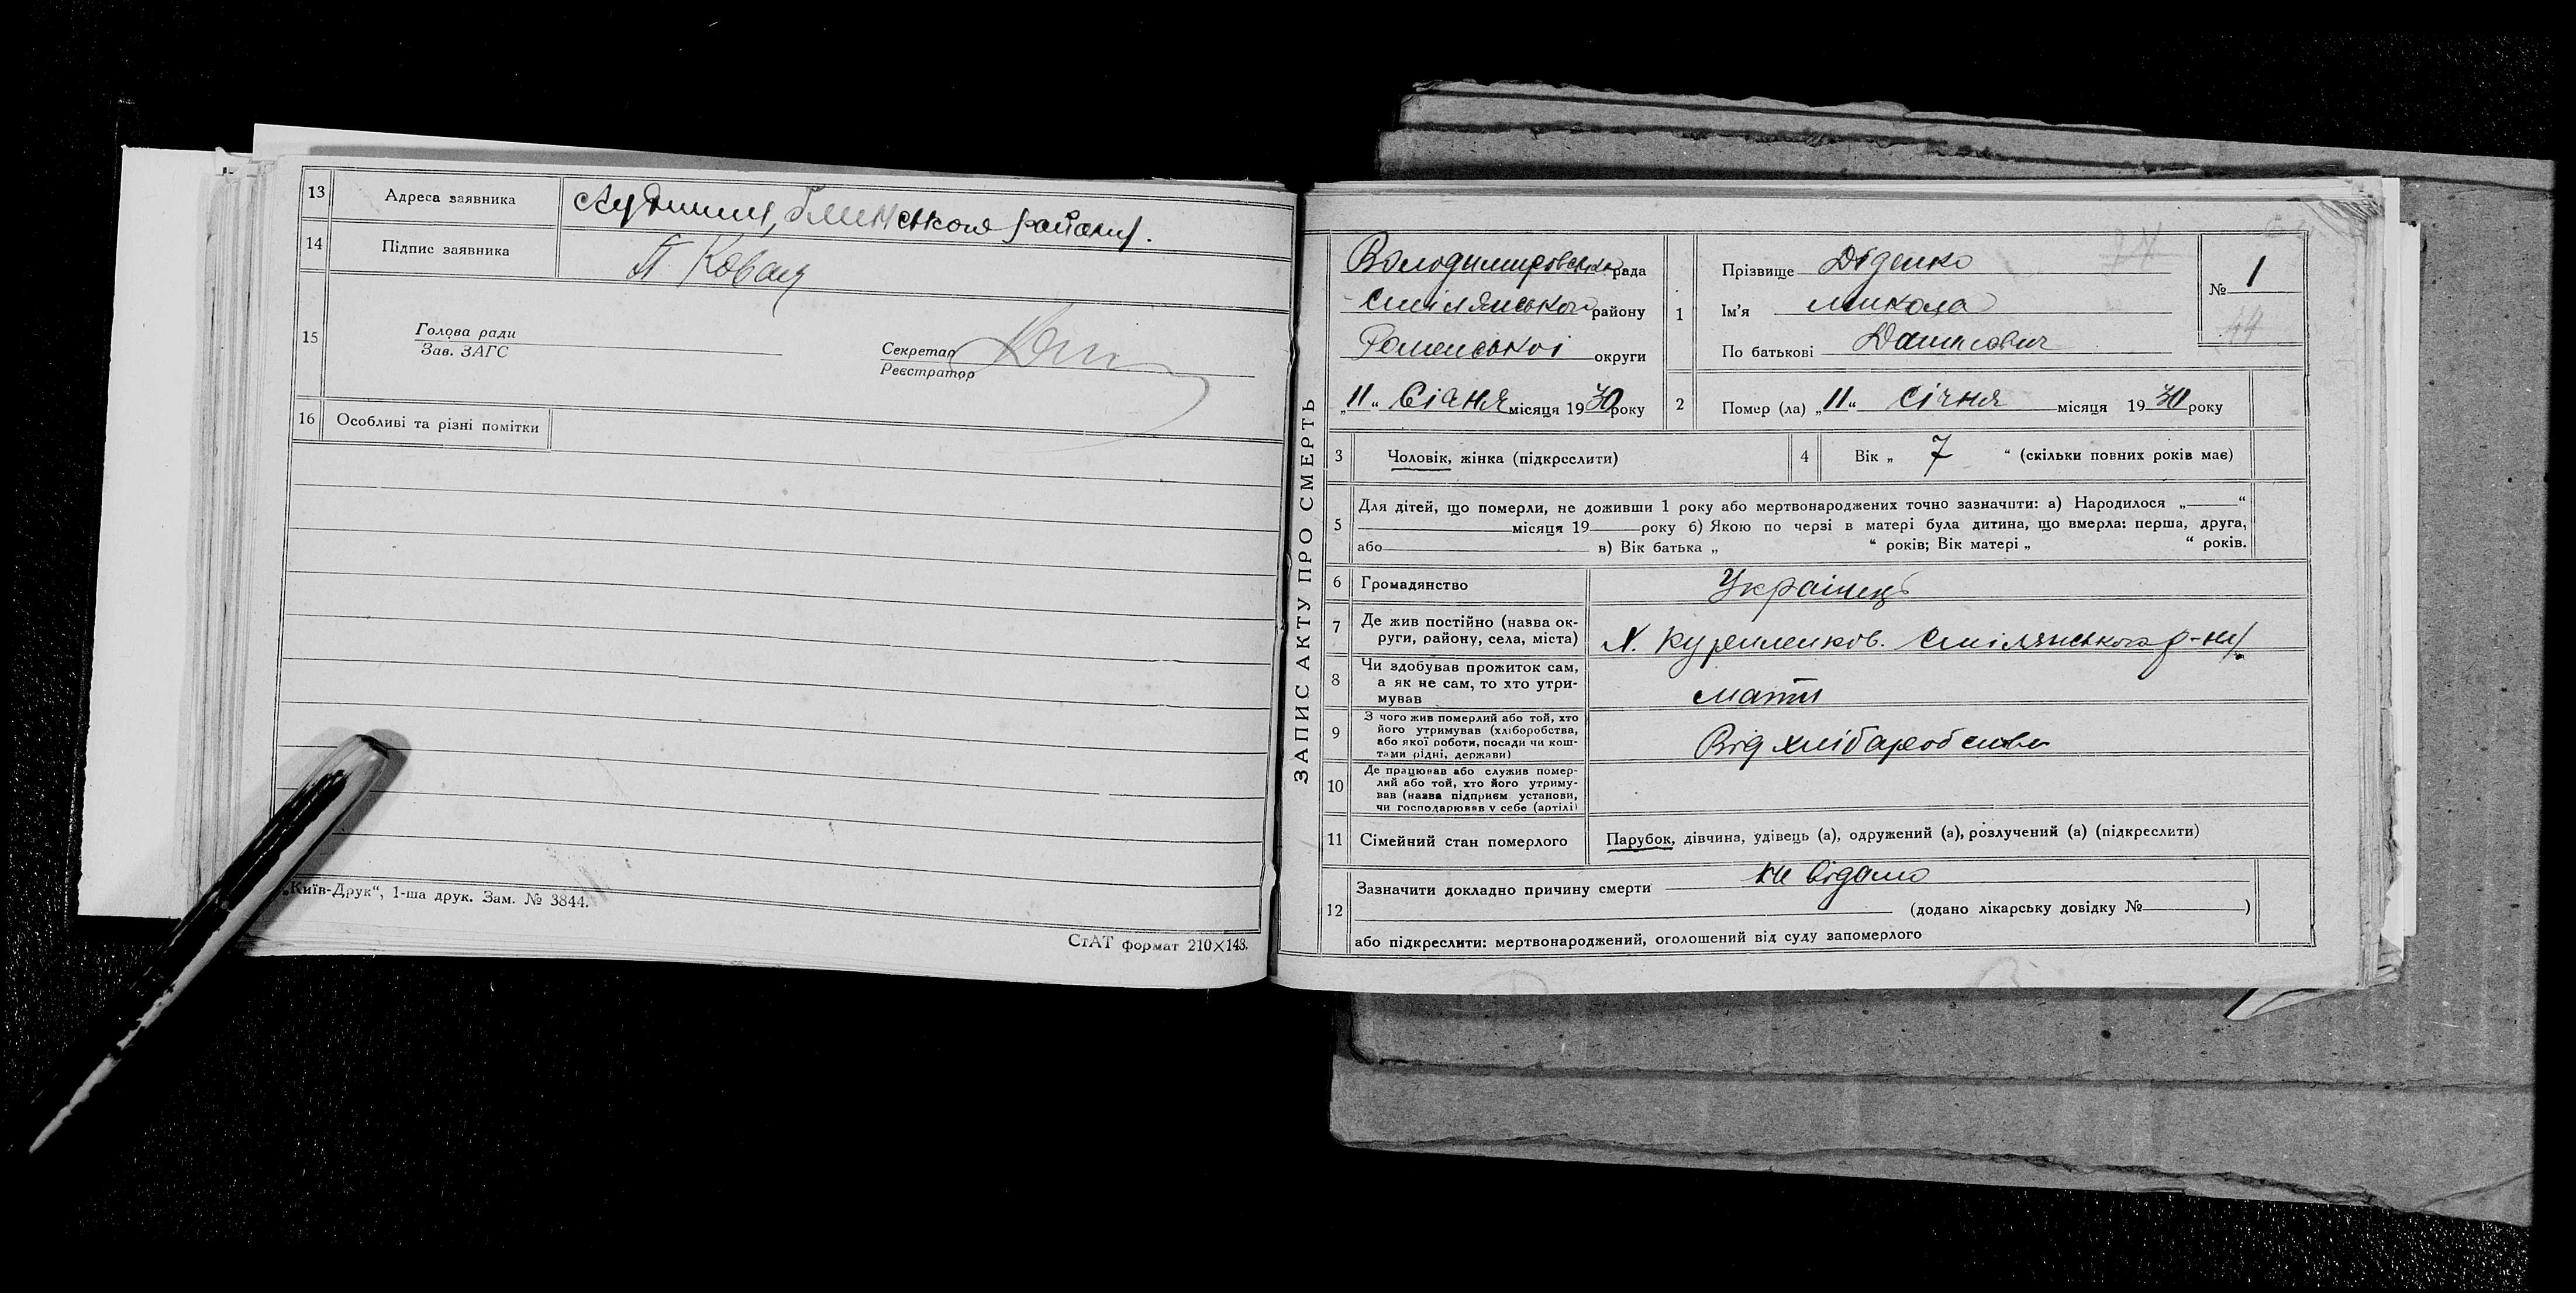 13 Адреса заявника района.
14 Підпис заявника П. Коваль
15 Голова ради
Зав. ЗАГС
Секретар
Реєстратор
16 Особливі та різні помітки
„Київ-Друк“, 1-ша друк. Зам. № 3844.
СтАТ формат 210×148.
ЗАПИС АКТУ ПРО СМЕРТЬ
Володимировська рада
Смілянського району
Роменської округи
„11“ Січня місяця 1930 року
1 Прізвище Діденко
Ім'я Микола
По батькові
№ 1
44
2 Помер (ла) „11“ Січня місяця 1930 року
3 Чоловік, жінка (підкреслити)
4 Вік „ 7 “ (скільки повних років має)
5 Для дітей, що померли, не доживши 1 року або мертвонароджених точно зазначити: а) Народилося „ “
місяця 19 року б) Якою по черзі в матері була дитина, що вмерла: перша, друга,
або в) Вік батька „ “ років; Вік матері „ “ років.
6 Громадянство Українець
7 Де жив постійно (назва ок-
руги, району, села, міста) Х. Смілянського р-ну.
8 Чи здобував прожиток сам,
а як не сам, то хто утри-
мував мати
9 З чого жив померлий або той, хто
його утримував (хліборобства,
або якої роботи, посади чи кош-
тами рідні, держави) Від хліборобства
10 Де працював або служив помер-
лий або той, хто його утриму-
вав (назва підприєм установи,
чи господарював у себе (артілі)
11 Сімейний стан померлого Парубок, дівчина, удівець (а), одружений (а), розлучений (а) (підкреслити)
12 Зазначити докладно причину смерти не відомо
(додано лікарську довідку № )
або підкреслити: мертвонароджений, оголошений від суду запомерлого